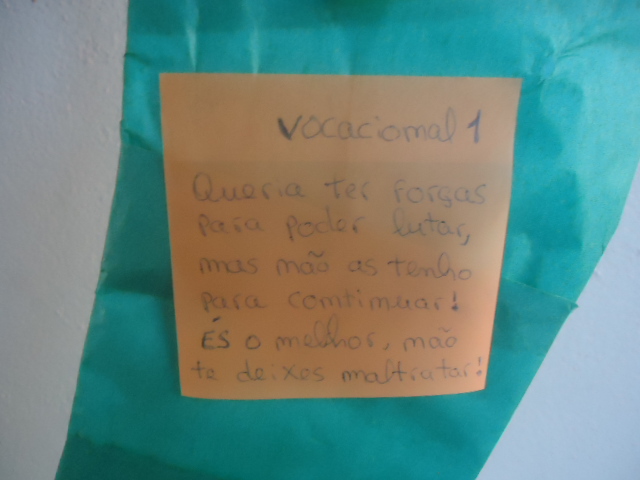 Vocacional 1
Queria ter forças
para poder lutar,
mas não as tenho
para continuar!
ÉS o melhor, não
te deixes maltratar!